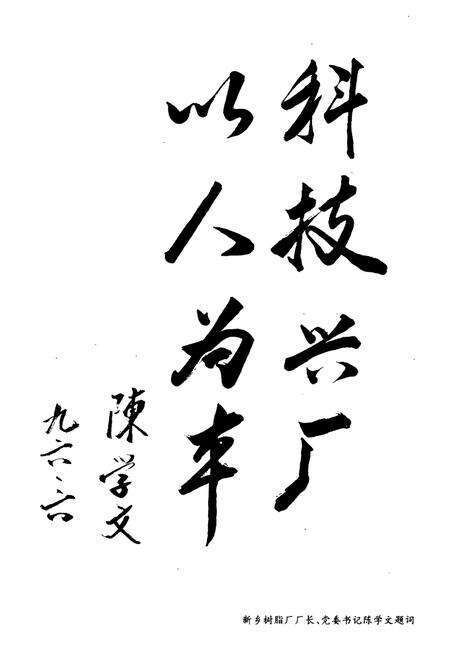 科技兴厂
以人为本
陳学文
九六、六
新乡树脂厂厂长、党委书记陈学文题词